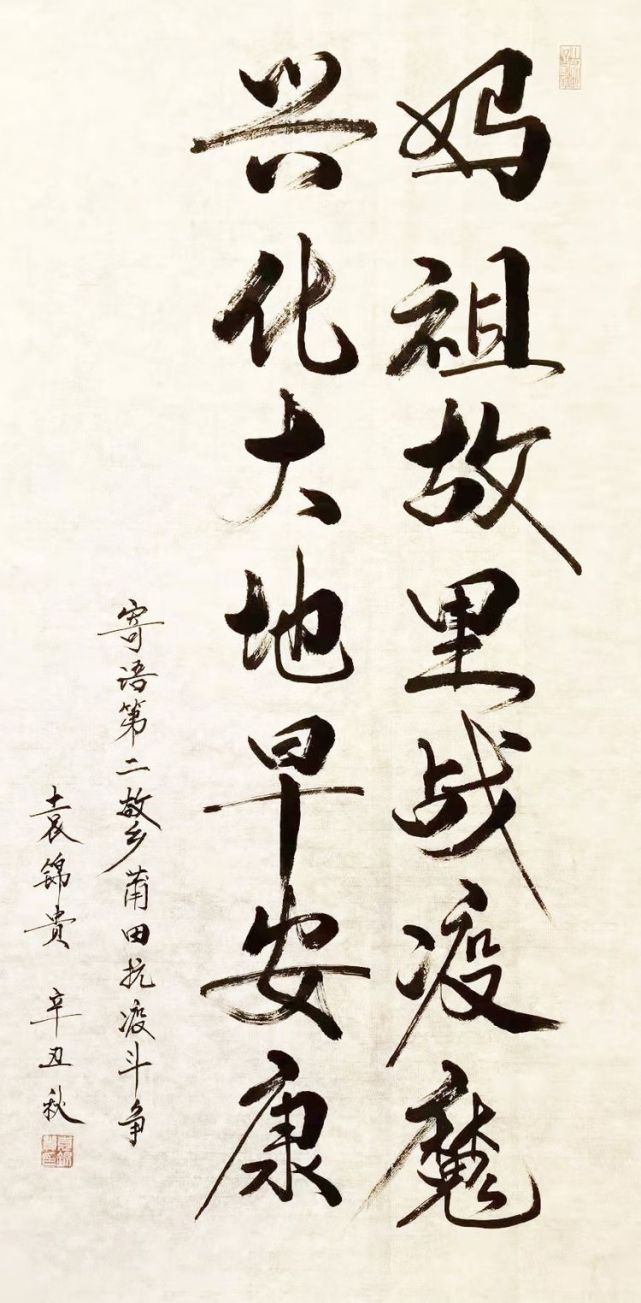 妈祖故里战疫魔
兴化大地早安康
寄语第二故乡莆田抗疫斗争
袁锦贵 辛丑秋